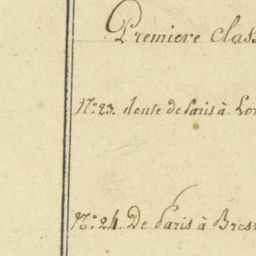 Premiere Class
N.º 23. Route de Paris à Lor
N.º 24. De Paris à Brest